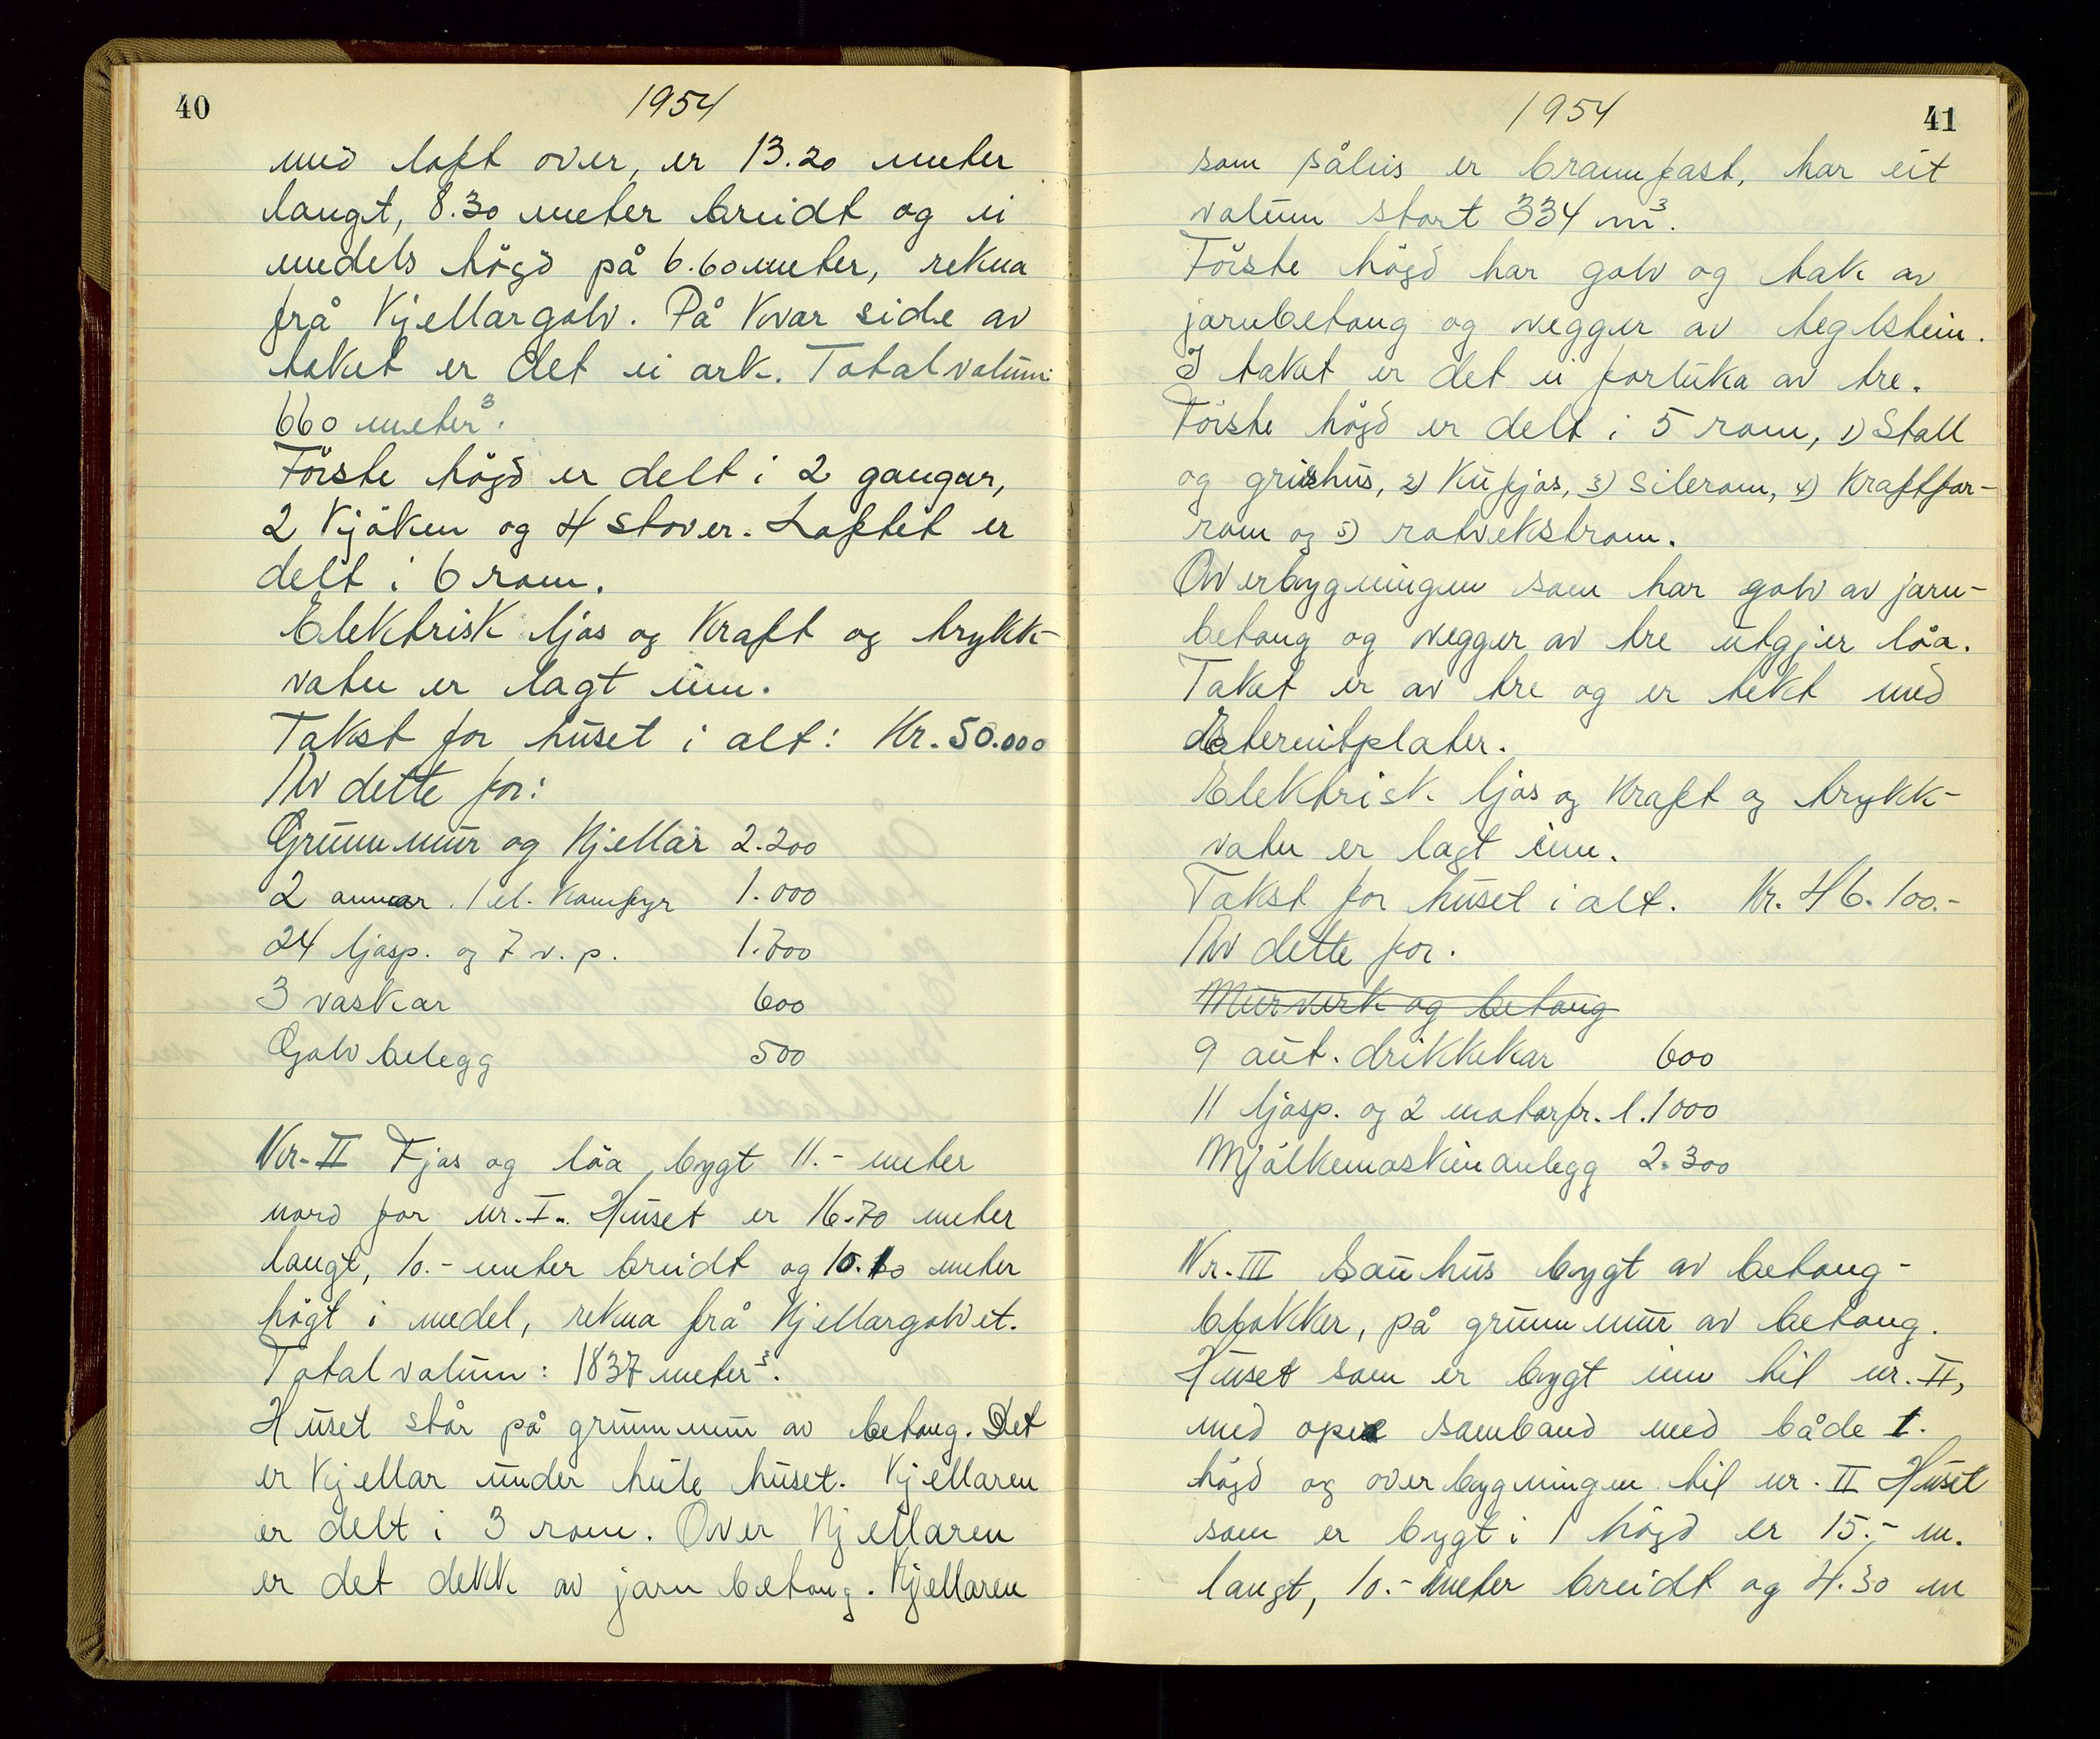 40
1954
med loft over, er 13.20 meter
langt, 8.30 meter breidt og ei
medels högd på 6.60 meter, rekna
frå Kjellargolv. På Kvar side av
taket er det ei ark. Totalvolum
660 meter³.
Förste högd er delt i 2 gangar,
2 Kjöken og 4 stover. Loftet er
delt i 6 rom.
Elektrisk ljos og Kraft og trykk-
vatn er lagt inn.
Takst for huset i alt: Kr. 50.000
Av dette for:
Grunnmur og Kjellar 2.200
2 omnar. 1 el. Komfyr 1.000
24 ljosp. og 7 v. p. 1.700
3 vaskar 600
Golvbelegg 500
Nr. II Fjos og löa, bygt 11.- meter
nord for nr. I. Huset er 16.70 meter
langt, 10.- meter breidt og 10.10 meter
högt i medel, rekna frå Kjellargolvet.
Totalvolum: 1837 meter³.
Huset står på grunnmur av betong. Det
er Kjellar under heile huset. Kjellaren
er delt i 3 rom. Over Kjellaren
er det dekk av jarnbetong. Kjellaren
41
1954
som såleis er brannfast, har eit
volum stort 334 m³.
Förste högd har golv og tak av
jarnbetong og vegger av teglstein.
I taket er det ei forluka av tre.
Förste högd er delt i 5 rom, 1) Stall
og grishus, 2) Kufjos, 3) Silerom, 4) Kraftfor-
rom og 5) rotvekstrom.
Overbygningen som har golv av jarn-
betong og vegger av tre utgjer löa.
Taket er av tre og er tekt med
Eternitplater.
Elektrisk ljos og Kraft og trykk-
vatn er lagt inn.
Takst for huset i alt. Kr. 46.100.-
Av dette for.
Murverk og betong
9 aut. drikkekar 600
11 ljosp. og 2 motorfr. l. 1000
Mjölkemaskinanlegg 2.300
Nr. III Sauhus bygt av betong-
blokker, på grunnmur av betong.
Huset som er bygt inn til nr. II,
med ope samband med både 1.
högd og overbygningen til nr. II Huset
som er bygt i 1 högd er 15.- m.
langt, 10.- meter breidt og 4.30 m